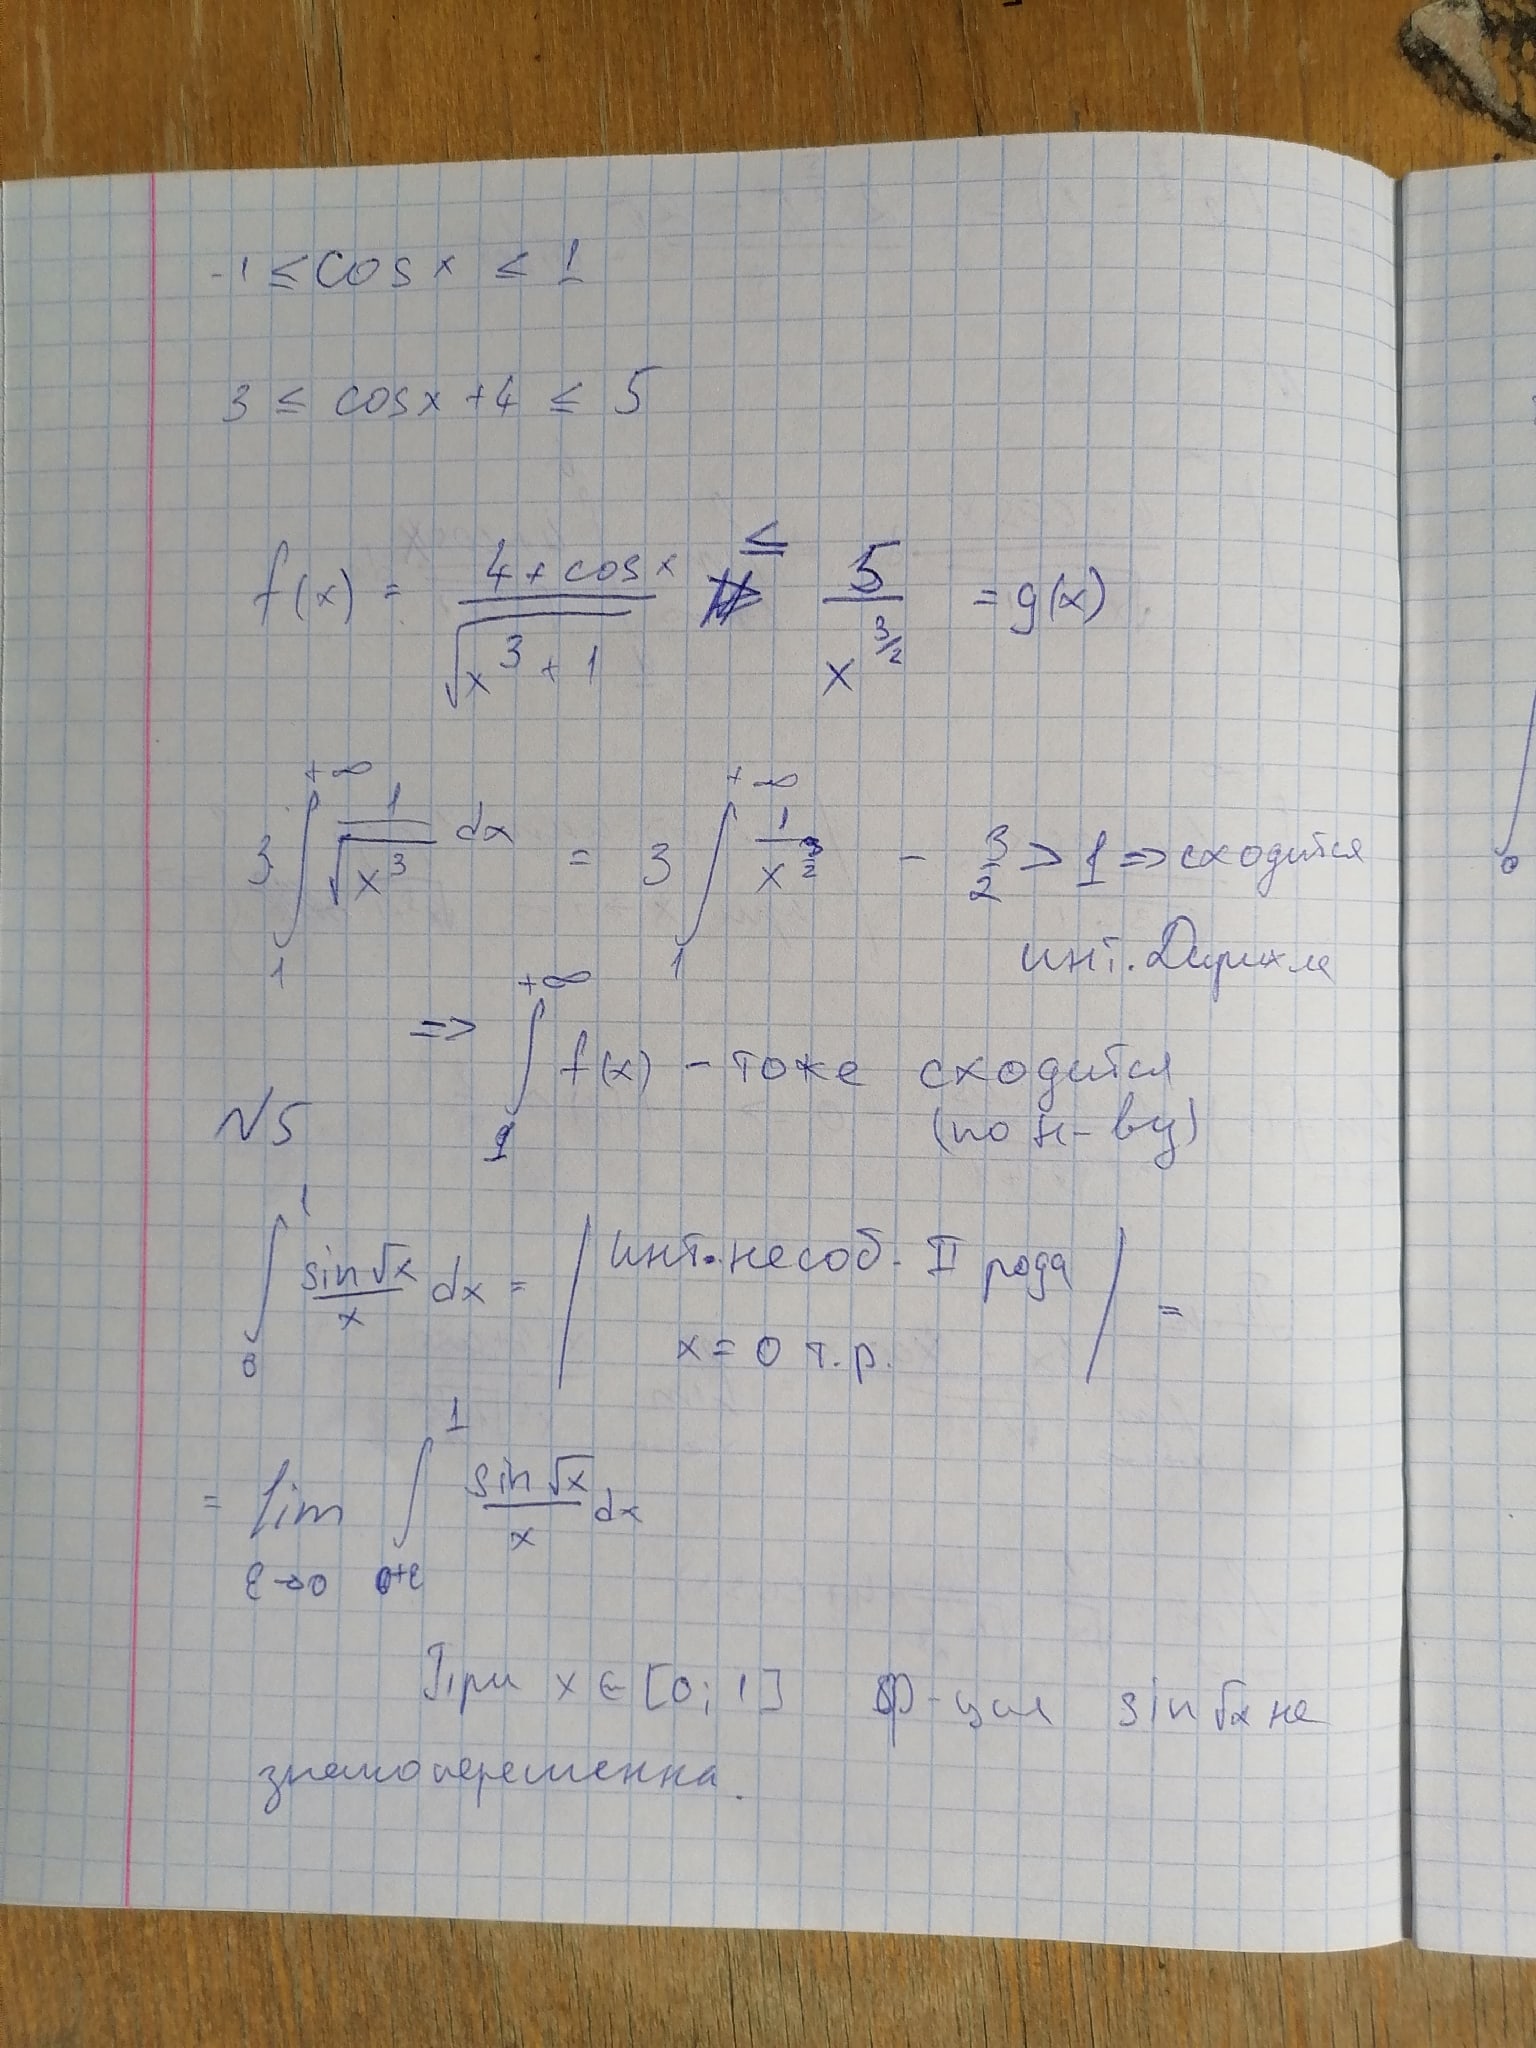 -1 ≤ cos x ≤ 1
3 ≤ cosx +4 ≤ 5
f(x) = (4 + cos x)/√(x^3 + 1) ≤ 5/x^(3/2) = g(x)
3 ∫_1^{+∞} 1/√(x^3) dx = 3 ∫_1^{+∞} 1/x^(3/2) - 3/2 > 1 => сходится
инт. Дирихле
=> ∫_1^{+∞} f(x) - тоже сходится
(по н-ву)
№5
∫_0^1 sin√x/x dx = | инт. несоб. II рода
x = 0 т.р. | =
= lim_{ε→0} ∫_{0+ε}^1 sin√x/x dx
При x ∈ [0; 1] ф-ция sin√x не
знакопеременна.
0